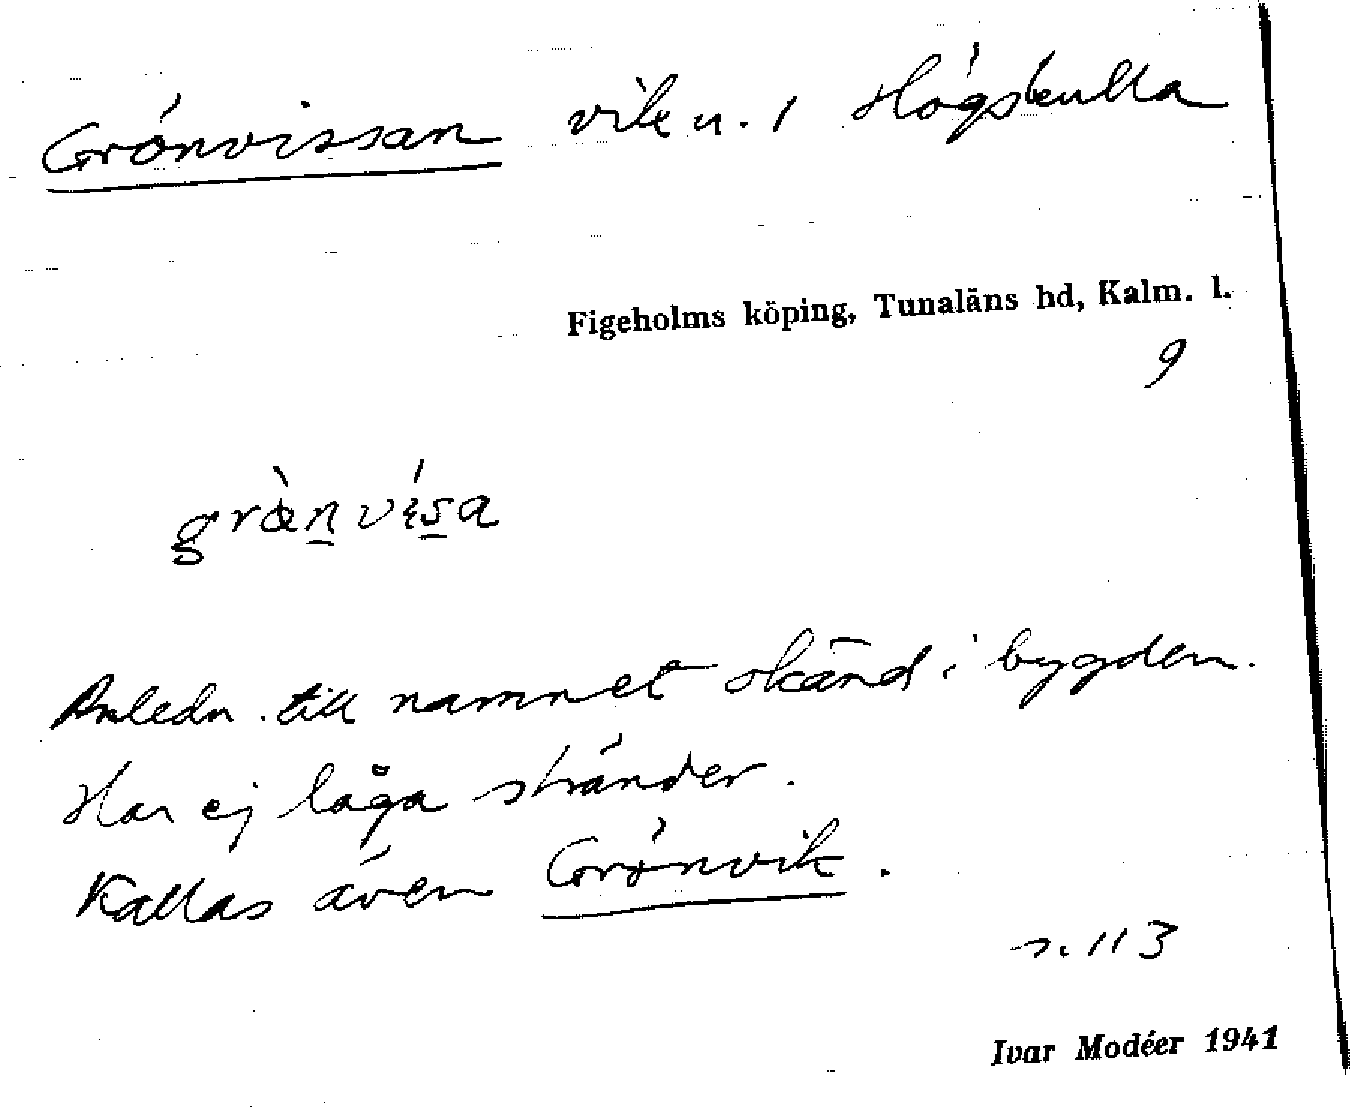 Grönvissan vik u. 1 Högskulla
Figeholms köping, Tunaläns hd, Kalm. l.
9
grœ̀nvísa
Anledn. till namnet okänd i bygden.
Har ej låga stränder.
Kallas även Grönvik.
s. 113
Ivar Modéer 1941